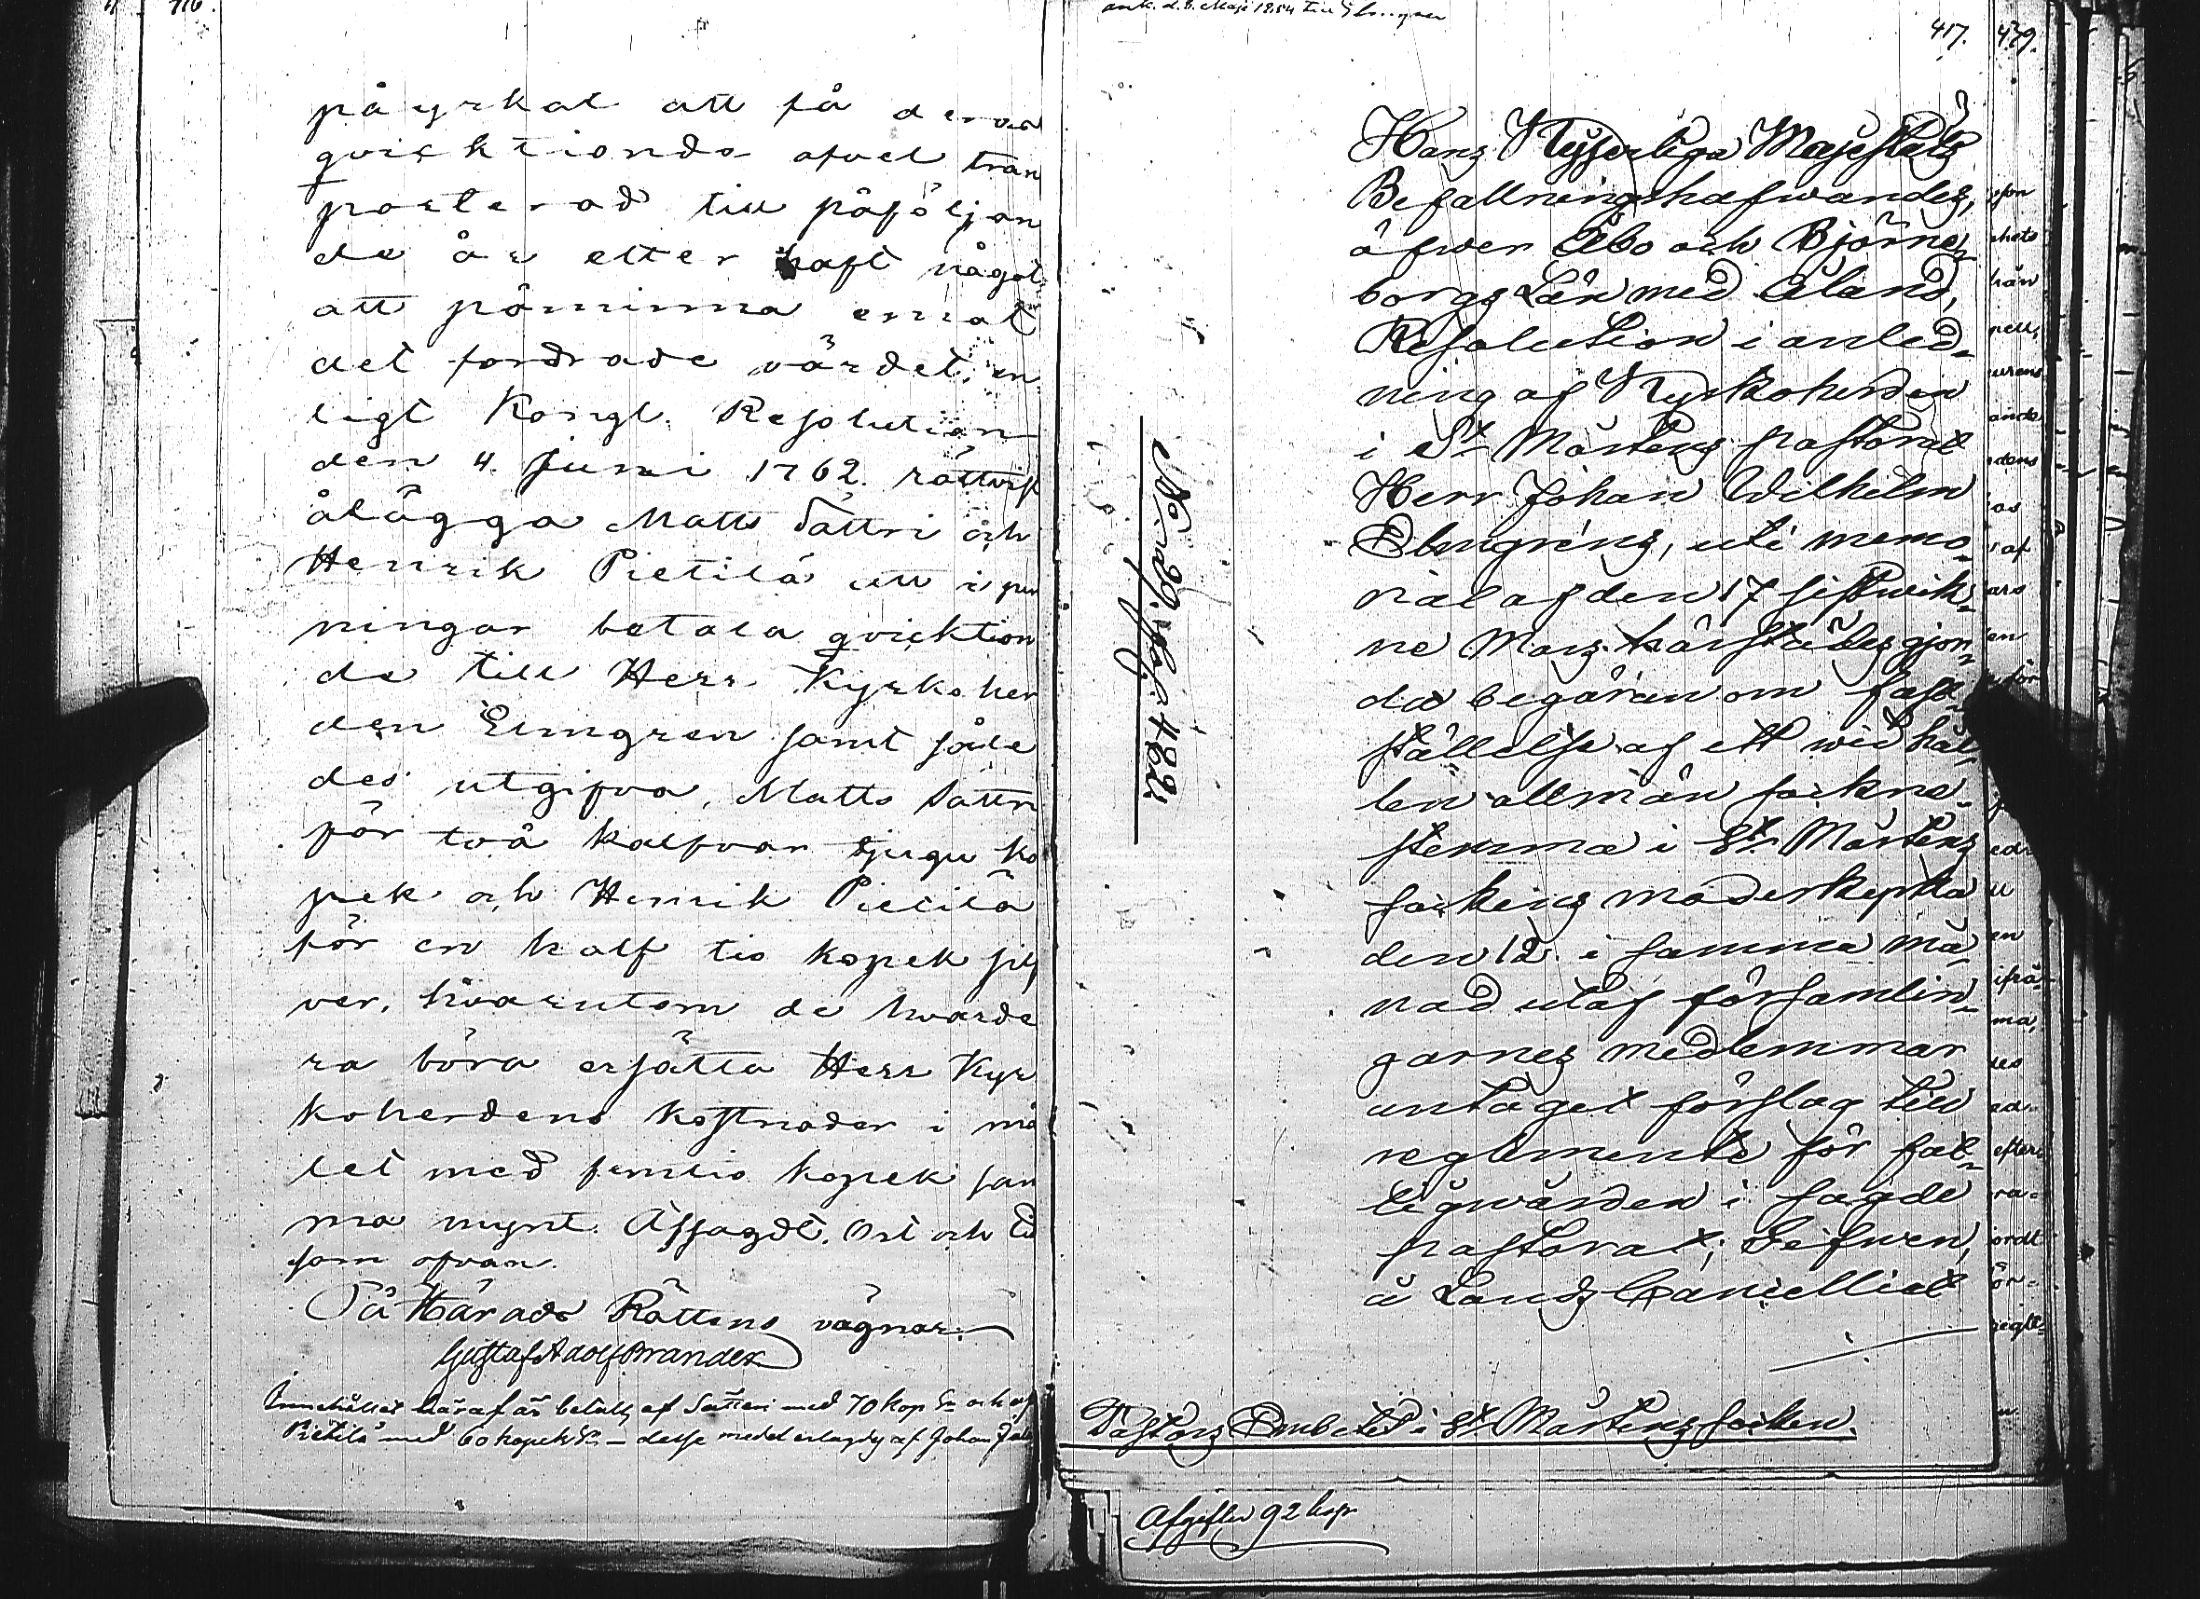 416.
påyrkat att få deras
qvicktionde afvel trans
porterad till påföljan
de år eller haft något
att påminna emot
det fordrade värdet, en
ligt Kongl. Resolution
den 4. Juni 1762. rättvist
ålägga Matts Sättri och
Henrik Pietilä att i pen
ningar betala qvicktion
de till Herr Kyrkoher
den Elmgren samt såle
des utgifva, Matts Sättri
för två kalfvar tjugu ko
pek och Henrik Pietilä
för en kalf tio kopek silf
ver, hvarutom de hvarde
ra böra ersätta Herr Kyr
koherdens kostnader i må
let med femtio kopek sam
ma mynt. Afsagdt, Ort och tid
som ofvan.
På Härads Rättens vägnar:
Gustaf Adolf Brander
Innehållet häraf är betalt af Sätteri med 70 kop Sr och af
Pietilä med 60 kopek Sr – desse medel erlagdes af Johan
ank. d. 8. Maji 1854 till Elmgren
417.
479.
Hans Kejserliga Majestäts
Befallningshafwandes,
öfwer Åbo och Björne-
borgs Län med Åland,
Resolution i anled-
ning af Kyrkoherden
i St Mårtens pastorat
Herr Johan Wilhelm
Elmgrens, uti memo-
rial af den 17 sistwik-
ne Mars härstädes gjor-
da begäran om fast-
ställelse af ett wid hål-
len allmän sockne-
stemma i St Mårtens
sockens moderkyrka
den 12 i samma må-
nad utaf församlin-
garnes medlemmar
antaget förslag till
reglemente för fat-
tigwården i sagde
pastorat; Gifwen
å Lands Cancelliet
Pastors Embetet i St Mårtens socken.
Afgifter 92 kop